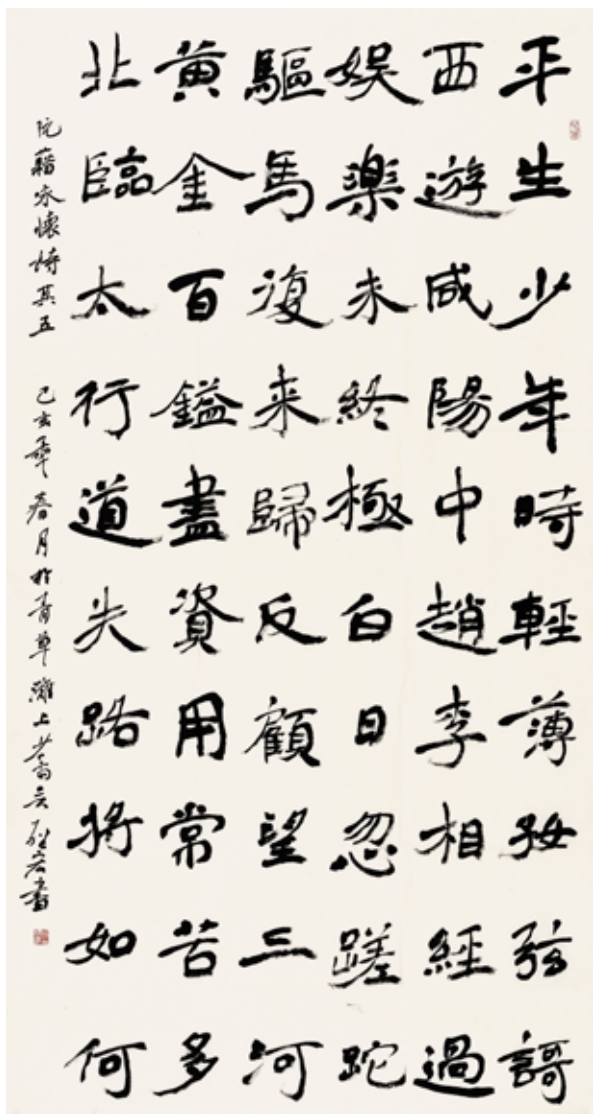 平生少年時輕薄好弦謌
西遊咸陽中趙李相經過
娱樂未終極白日忽蹉跎
驅馬復来歸反顧望三河
黄金百鎰盡資用常苦多
北臨太行道失路将如何
阮藉咏懷詩其五 己亥年春月於青草灘上 書